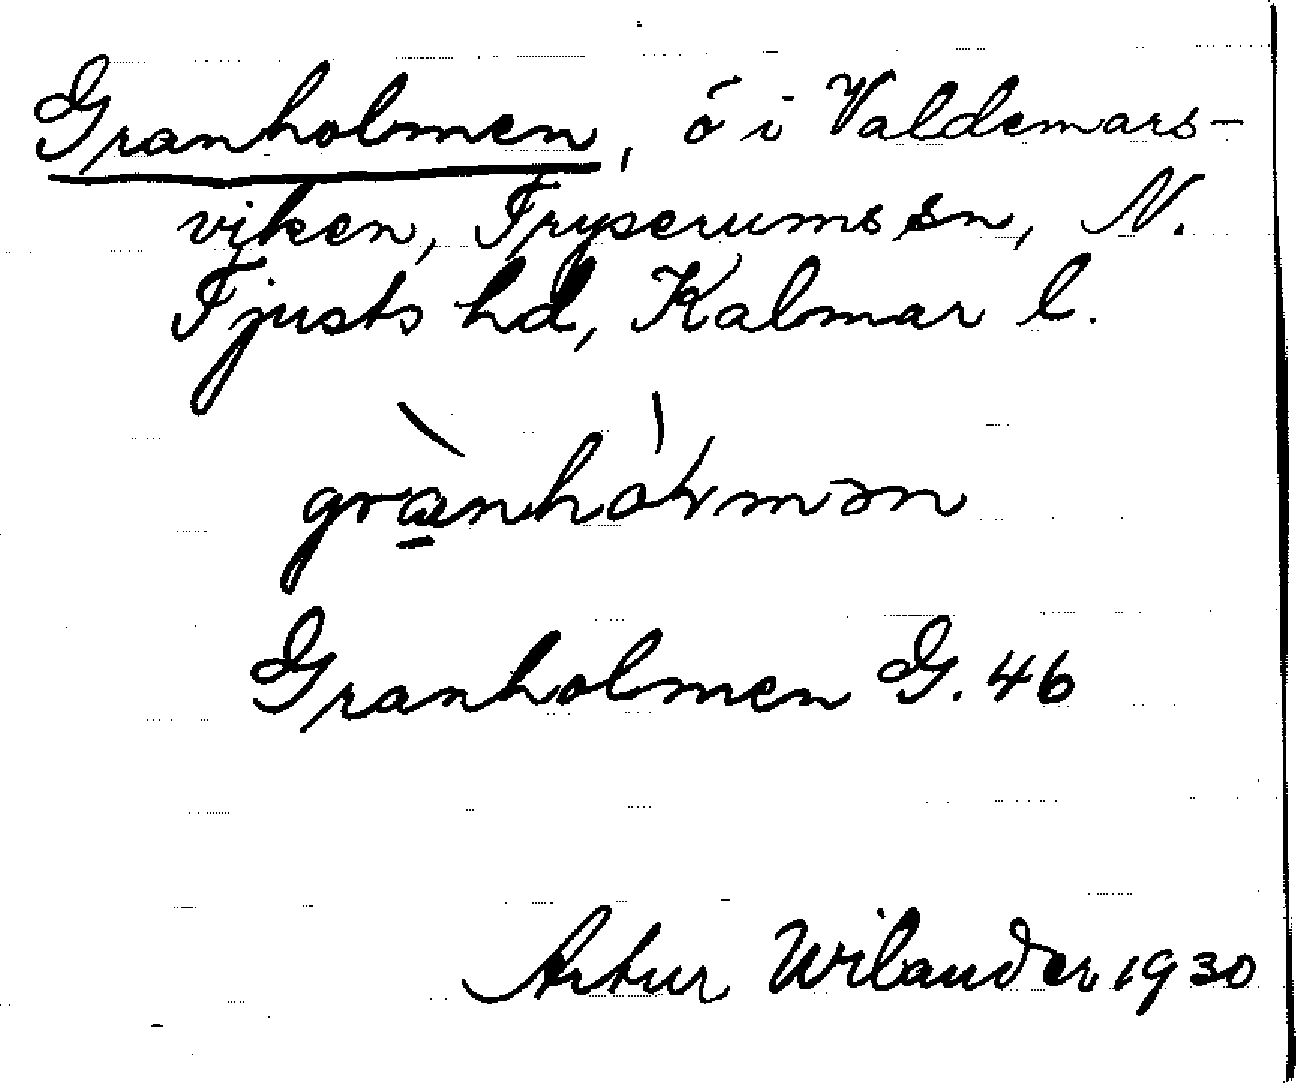 Granholmen, ö i Valdemars-
viken, Tryserums sn, N.
Tjusts hd, Kalmar l.
Granholmen G. 46
Artur Wilander 1930